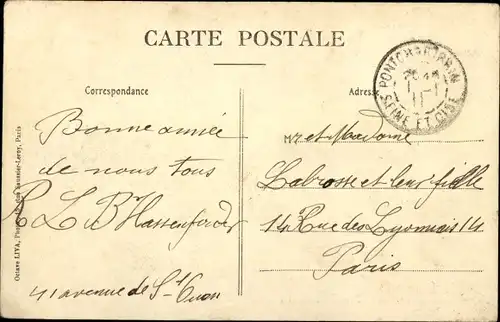 CARTE POSTALE
Correspondance
Adresse
PONTCHARTRAIN
SEINE ET OISE
Bonne année
de nous tous
R L B Hassenforder
41 avenue de St Ouen
Mr et Madame
Labrosse et leur fille
14 Rue des Lyonnais 14
Paris
Octave LIVA, Paris